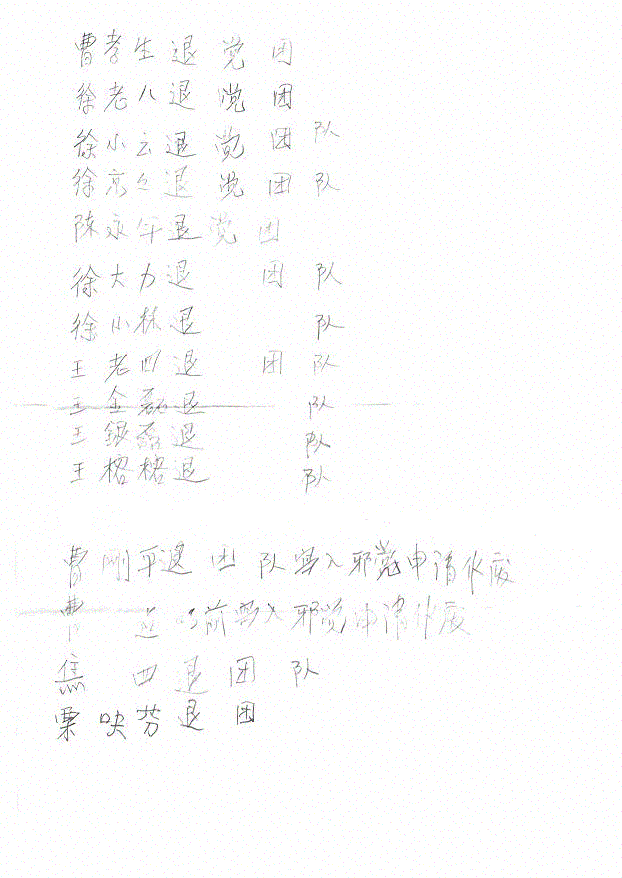 曹孝生退党 团
徐老八退党 团
徐小云退党 团 队
徐京之退党 团 队
陈永年退党 团
徐大力退 团 队
徐小林退 队
王老四退 团 队
王金磊退 队
王银磊退 队
王榕榕退 队
曹刚平退 团 队写入邪党申请作废
曹 以前写入邪党申请作废
焦 四 退 团 队
栗 芬 退 团